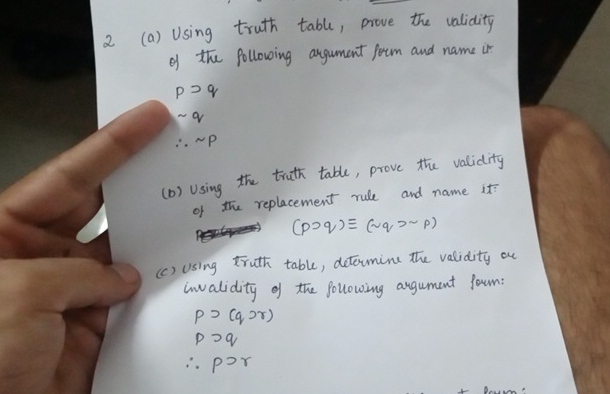 2 (a) Using truth table, prove the validity
of the following argument form and name it:
p ⊃ q
~ q
∴ ~p
(b) Using the truth table, prove the validity
of the replacement rule and name it:
(p⊃q) ≡ (~q ⊃ ~ p)
(c) Using truth table, determine the validity or
invalidity of the following argument form:
p ⊃ (q ⊃r)
p ⊃q
∴ p⊃r
form: